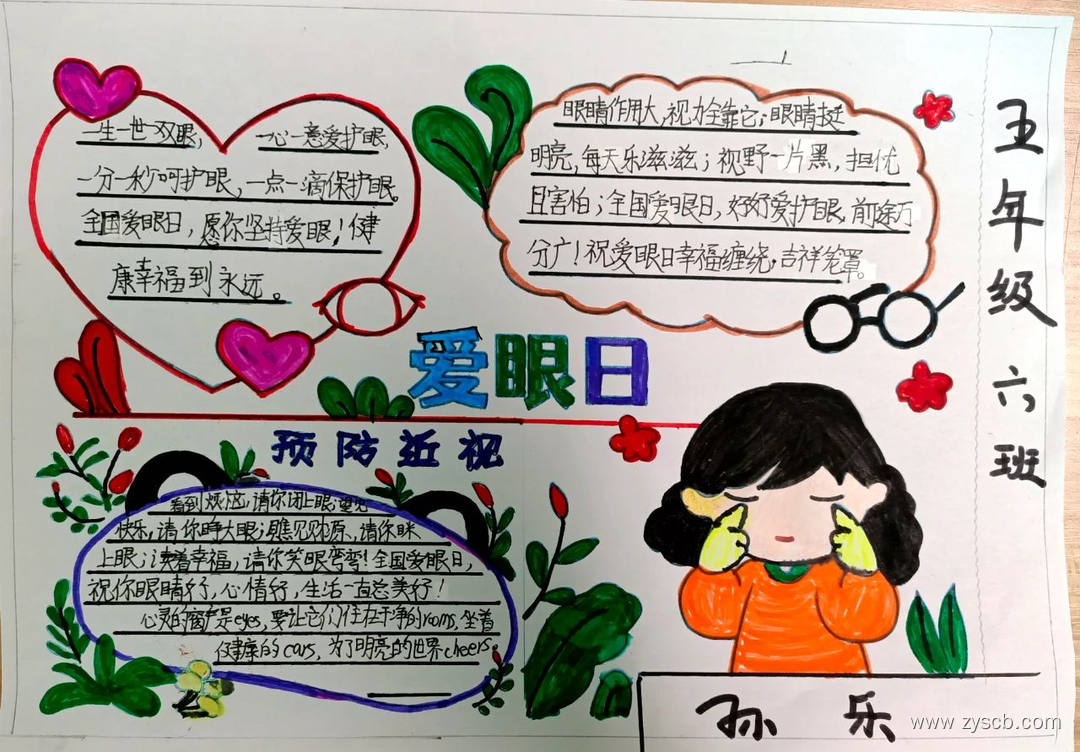 一生一世双眼，
一心一意爱护眼，
一分一秒呵护眼，一点一滴保护眼。
全国爱眼日，愿你坚持爱眼！健
康幸福到永远。
眼睛作用大，视力全靠它；眼睛挺
明亮，每天乐滋滋；视野一片黑，担忧
且害怕；全国爱眼日，好好爱护眼，前途万
分广！祝爱眼日幸福缠绕，吉祥笼罩。
爱眼日
预防近视
看到烦恼，请你闭上眼；遇见
快乐，请你睁大眼；瞧见财源，请你眯
上眼；读着幸福，请你笑眼弯弯！全国爱眼日，
祝你眼睛好，心情好，生活一直总美好！
心灵的窗户是eyes，要让它们住在干净的rooms，坐着
健康的cars，为了明亮的世界cheers。
五年级六班
孙乐
www.zyscb.com